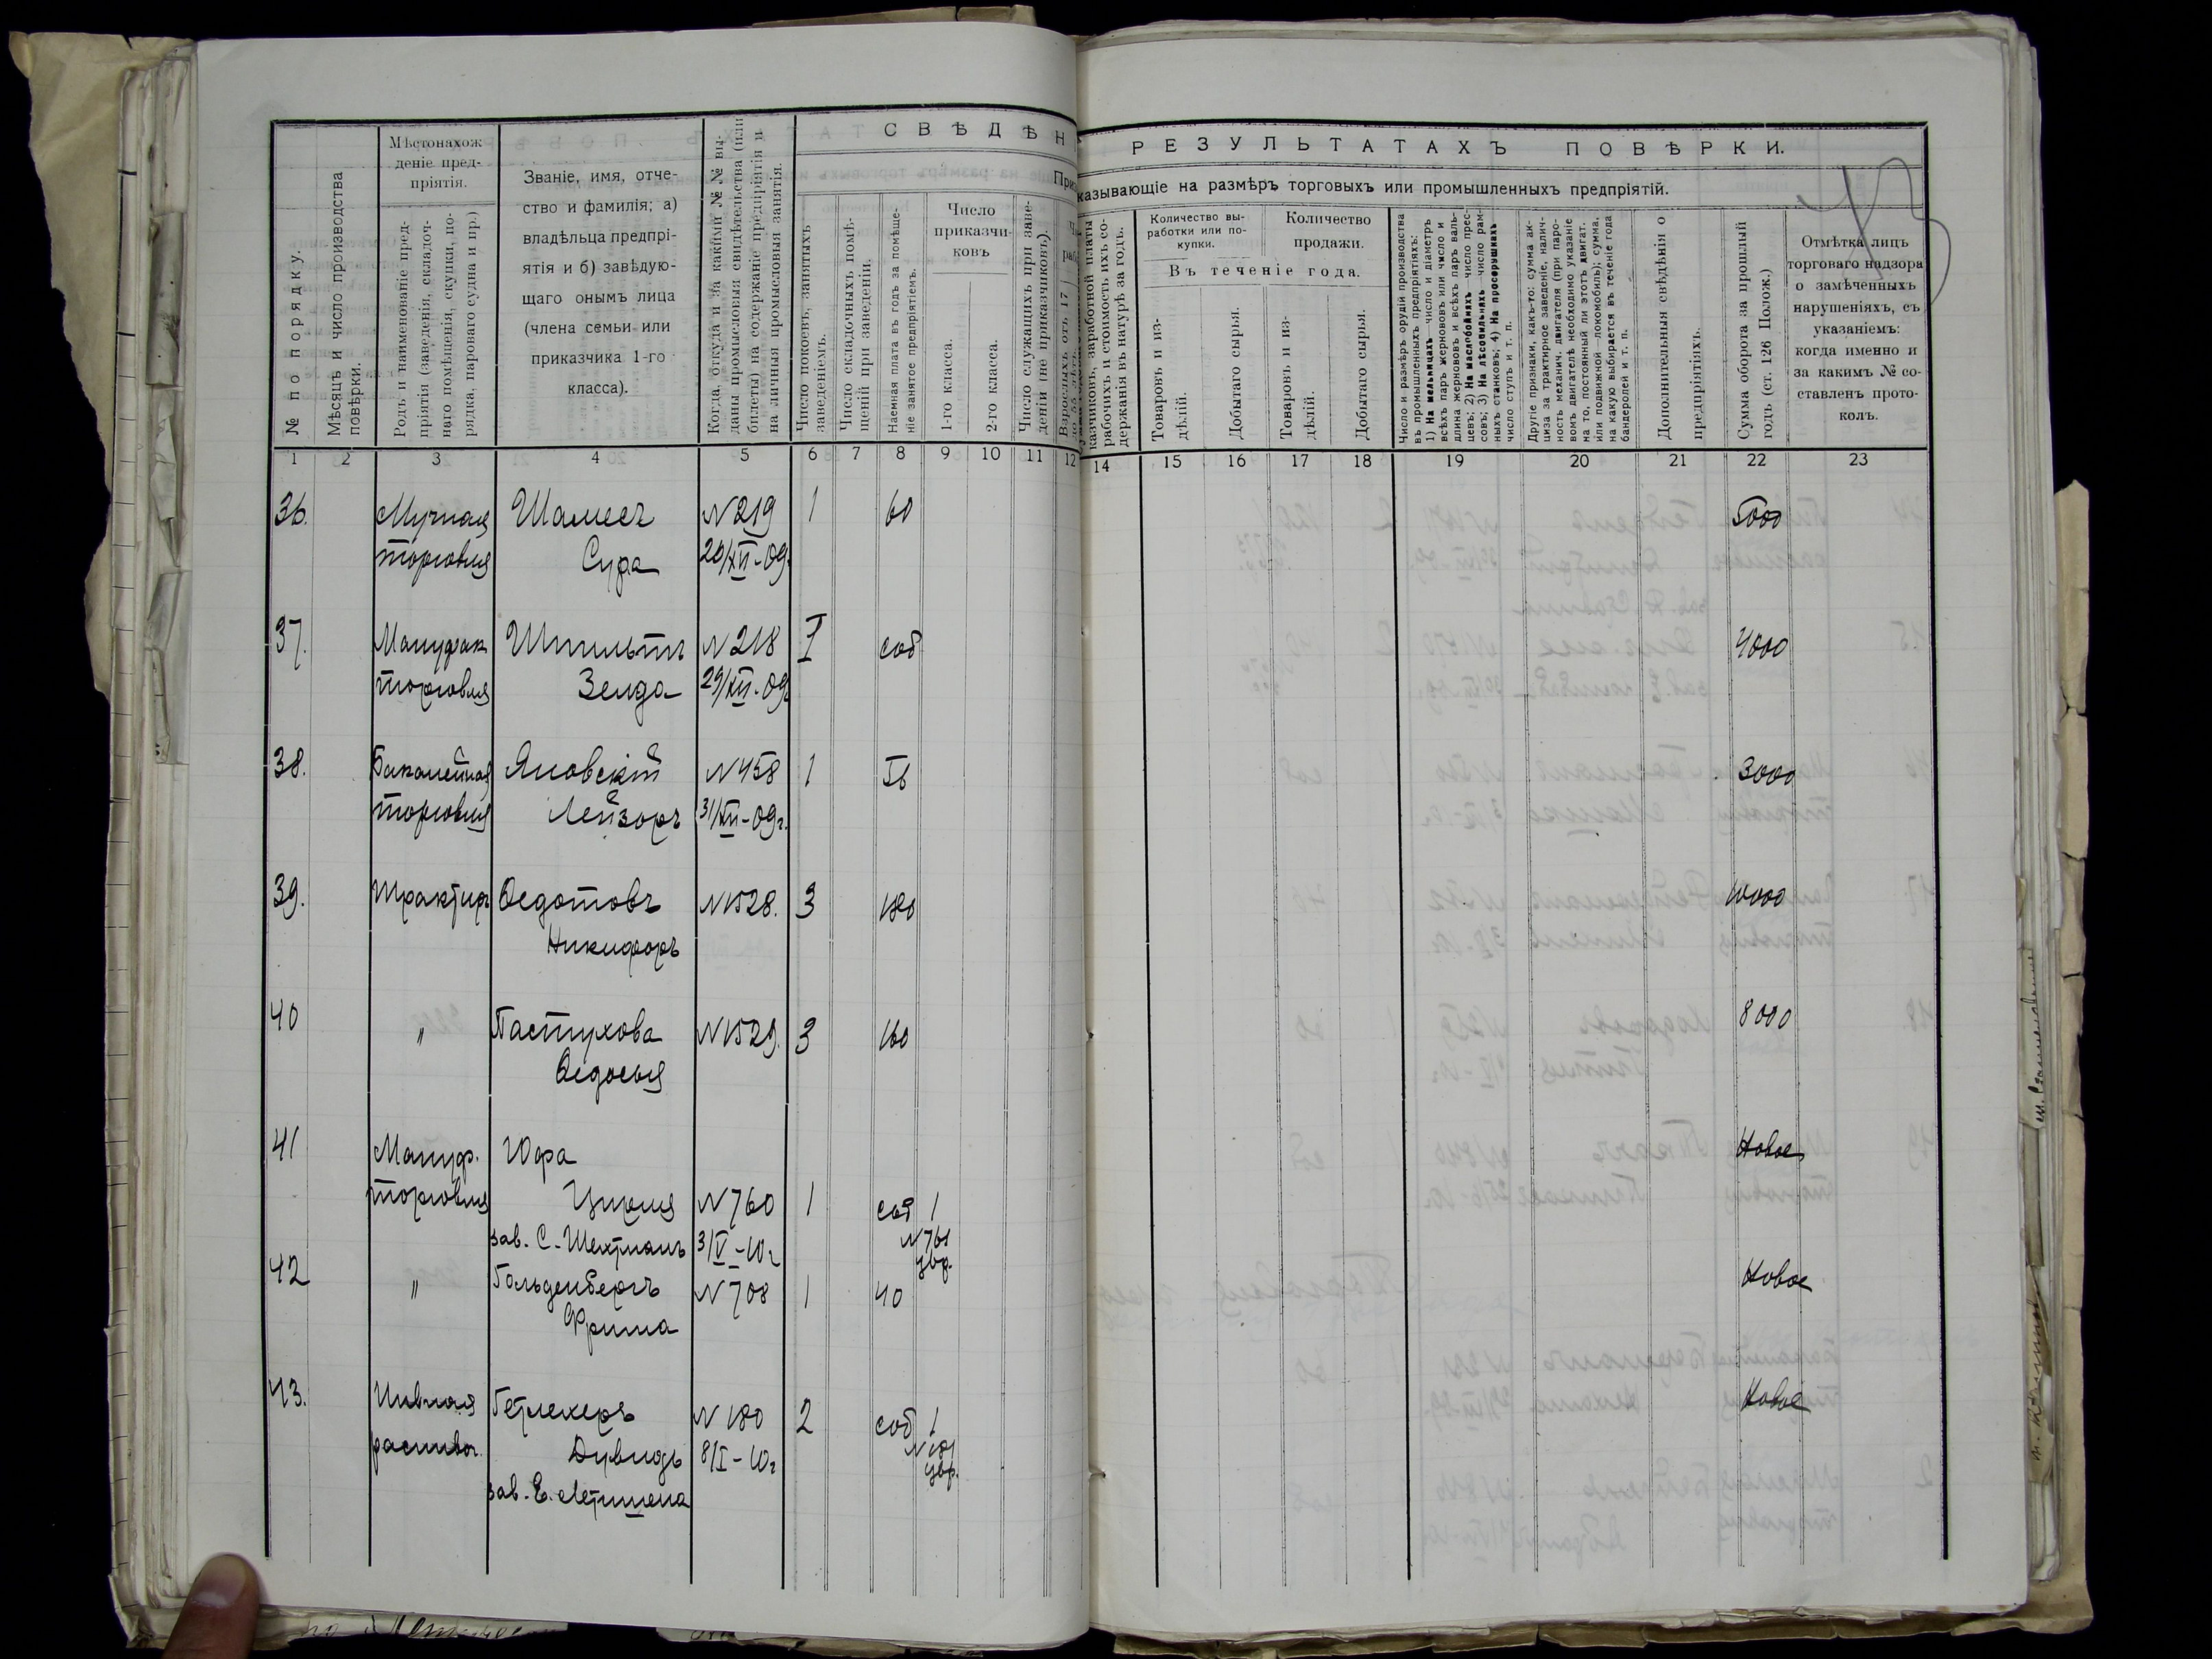 СВѢДѢН
РЕЗУЛЬТАТАХЪ ПОВѢРКИ.
казывающіе на размѣръ торговыхъ или промышленныхъ предпріятій.
№ по порядку.
Мѣсяцъ и число производства
повѣрки.
Мѣстонахож
деніе пред-
пріятія.
Родъ и наименованіе пред-
пріятія (заведенія, складоч-
наго помѣщенія, скупки, по-
рядка, парового судна и пр.)
Званіе, имя, отче-
ство и фамилія; а)
владѣльца предпрі-
ятія и б) завѣдую-
щаго онымъ лица
(члена семьи или
приказчика 1-го
класса).
Когда, откуда и за какими № № вы-
даны промысловыя свидѣтельства (или
билеты) на содержаніе предпріятія и
на личныя промысловыя занятія.
Число покоевъ, занятыхъ
заведеніемъ.
Число складочныхъ помѣ-
щеній при заведеніи.
Наемная плата въ годъ за помѣще-
ніе занятое предпріятіемъ.
Число
приказчи-
ковъ
1-го класса.
2-го класса.
Число служащихъ при заве-
деніи (не приказчиковъ).
Взрослыхъ отъ 17
казчиковъ, заработной платы
рабочихъ и стоимость ихъ со-
держанія въ натурѣ за годъ.
Количество вы-
работки или по-
купки.
Количество
продажи.
Въ теченіе года.
Товаровъ и из-
дѣлій.
Добытаго сырья.
Товаровъ и из-
дѣлій.
Добытаго сырья.
Число и размѣръ орудій производства
въ промышленныхъ предпріятіяхъ:
1) На мельницахъ число и діаметръ
всѣхъ паръ жернововъ или число и
длина жернововъ и всѣхъ паръ валь-
цевъ; 2) На маслобойняхъ число прес-
совъ; 3) На лѣсопильняхъ число рам-
ныхъ станковъ; 4) На просорушкахъ
число ступъ и т. п.
Другіе признаки, какъ-то: сумма ак-
циза за трактирное заведеніе, налич-
ность механич. двигателя (при паро-
вомъ двигателѣ необходимо указаніе
на то, постоянный ли этотъ двигат.
или подвижной—локомобиль); сумма,
на какую выбирается въ теченіе года
бандеролей и т. п.
Дополнительныя свѣдѣнія о
предпріятіяхъ.
Сумма оборота за прошлый
годъ (ст. 126 Полож.)
Отмѣтка лицъ
торговаго надзора
о замѣченныхъ
нарушеніяхъ, съ
указаніемъ:
когда именно и
за какимъ № со-
ставленъ прото-
колъ.
1 2 3 4 5 6 7 8 9 10 11 12 14 15 16 17 18 19 20 21 22 23
36. Мучная Шамесъ N 219 1 60 5000
торговля Сура 29/XII-09.
37. Мануфак Шпильтъ N 218 1 соб 4000
торговля Зелда 29/XII-09
38. Бакалейная Яновскій N 458 1 56 3000
торговля Лейзоръ 31/XII-09г.
39. Трактиръ Ѳедотовъ N 1528. 3 180 10000
Никифоръ
40 " Пастухова N 1529. 3 160 8000
Ѳедосья
41 Мануф. Юфа Новое
торговля Цирля N 760 1 соб 1
зав. С. Шехтманъ 3/V-10г N 761
увр.
42 " Гольденбергъ N 708 1 40 Новое
Фрима
43. Пивная Гетлехеръ N 180 2 соб 1 Новое
распивоч. Дувидъ 8/I-10г N 181
увр.
зав. Е.